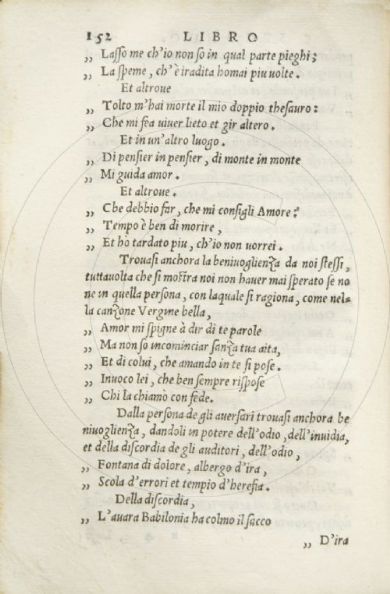 152 LIBRO
„ Laſſo me ch'io non ſo in qual parte pieghi;
„ La ſpeme, ch'è tradita homai piu uolte.
Et altroue
„ Tolto m'hai morte il mio doppio theſauro:
„ Che mi fea uiuer lieto et gir altero.
Et in un'altro luogo.
„ Di penſier in penſier, di monte in monte
„ Mi guida amor.
Et altroue.
„ Che debbio far, che mi conſigli Amore?
„ Tempo è ben di morire,
„ Et ho tardato piu, ch'io non uorrei.
Trouaſi anchora la beniuoglienza da noi ſteſſi,
tuttauolta che ſi moſtra noi non hauer mai ſperato ſe no
ne in quella perſona, con laquale ſi ragiona, come nel-
la canzone Vergine bella,
„ Amor mi ſpigne à dir di te parole
„ Ma non ſo incominciar ſanza tua aita,
„ Et di colui, che amando in te ſi poſe.
„ Inuoco lei, che ben ſempre riſpoſe
„ Chi la chiamò con fede.
Dalla perſona de gli auerſari trouaſi anchora be
niuoglienza, dandoli in potere dell'odio, dell'inuidia,
et della diſcordia de gli auditori, dell'odio,
„ Fontana di dolore, albergo d'ira,
„ Scola d'errori et tempio d'hereſia.
Della diſcordia,
„ L'auara Babilonia ha colmo il ſacco
„ D'ira